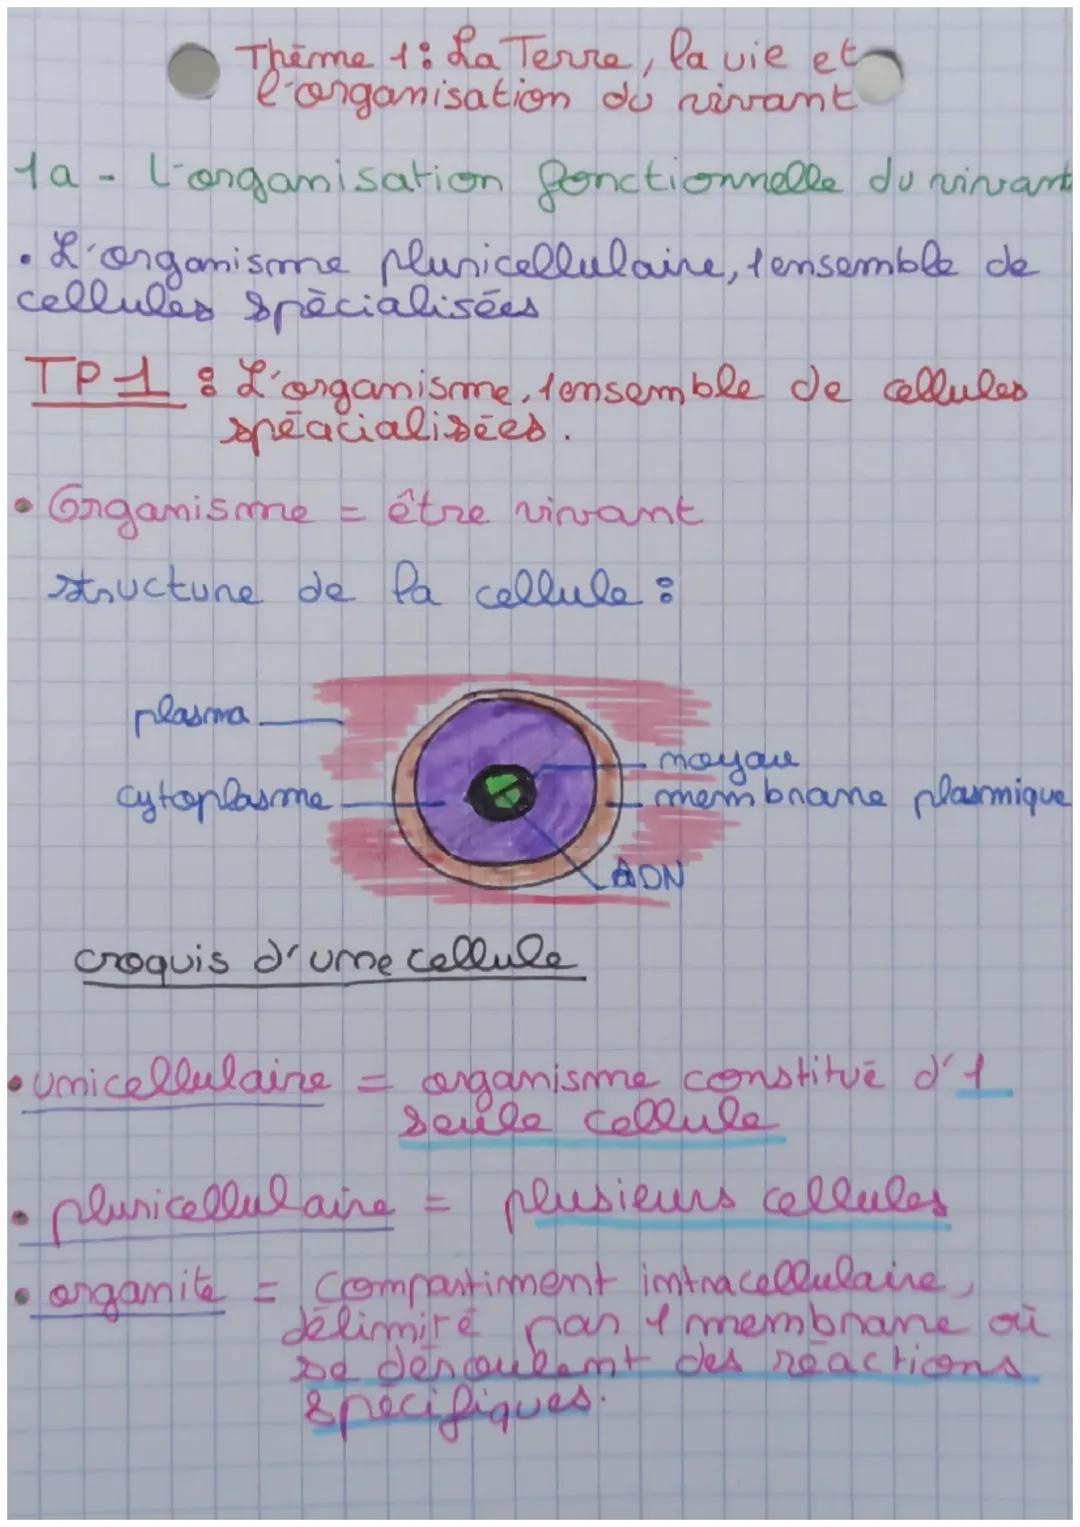 Thème 1: La Terre, la vie et
l'organisation du vivant
1a - L'organisation fonctionnelle du vivant
• L'organisme pluricellulaire, 1 ensemble de
cellules spécialisées
TP 1 : L'organisme, 1 ensemble de cellules
spéacialisées.
• Organisme = être vivant
structure de la cellule :
plasma
noyau
cytoplasme
membrane plasmique
ADN
croquis d'une cellule
• unicellulaire = organisme constitué d'1
seule cellule
• pluricellulaire = plusieurs cellules
• organite = Compartiment intracellulaire,
délimité par 1 membrane où
se déroulent des réactions
spécifiques.